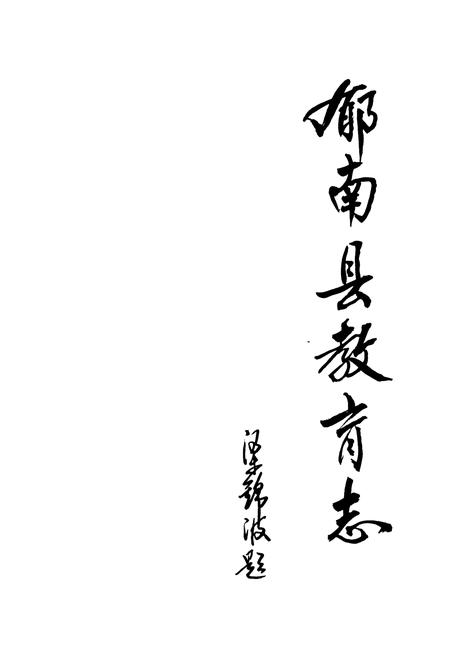 郁南县教育志
梁锦波题